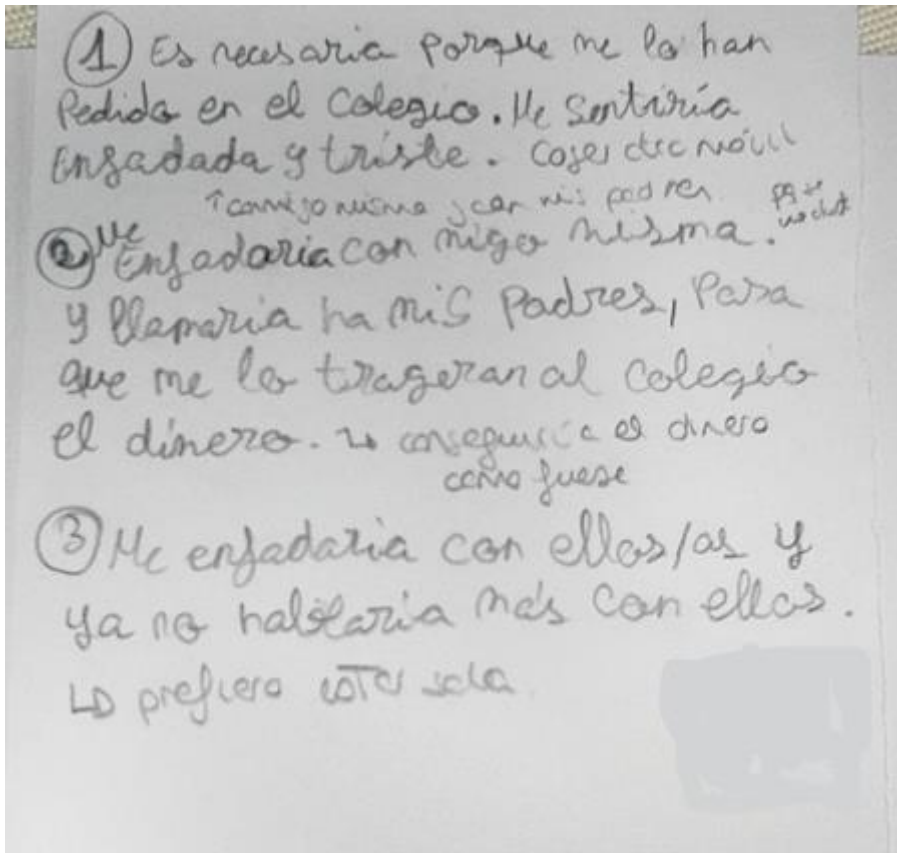 ① Es necesaria porque me lo han
Pedido en el Colegio. Me Sentiría
Enfadada y triste. coger móvil
↑ conmigo misma y con mis padres
② Me Enfadaria con migo misma.
y llamaria ha mis Padres, Para
que me lo trageran al colegio
el dinero. ↳ conseguiria el dinero
como fuese
③ Me enfadaria con ellos/as y
ya no hablaria más con ellos.
↳ prefiero estar sola